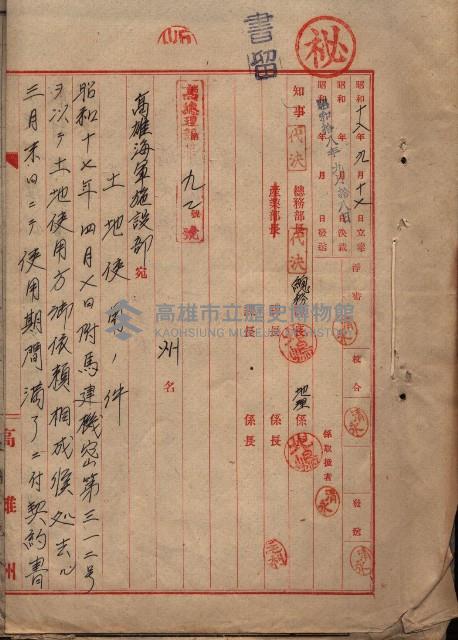 秘
書留
昭和十八年九月十七日立案
昭和 年 月 日決裁
昭和 年 月 日發送
昭和拾八年九月拾八日
淨書 清永
校合 清永
發送 清永
知事 代決
總務部長 代決
產業部長
總務課長
課長
課長
地理係長
係長
係長
係取扱者 清永
高總理 第九乙號
州名
高雄海軍施設部宛
土地使用ノ件
昭和十七年四月七日附馬建機密第三一二号
ヲ以テ土地使用方御依賴相成候処去ル
三月末日ニテ使用期間滿了ニ付契約書
高雄州
高雄市立歷史博物館
KAOHSIUNG MUSEUM OF HISTORY